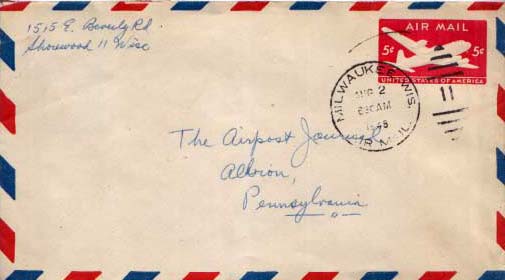 1515 E. Beverly Rd
Shorewood 11 Wisc
AIR MAIL
5¢ 5¢
UNITED STATES OF AMERICA
MILWAUKEE, WIS.
AUG 2
630AM
1948
AIR MAIL.
11
The Airpost Journal
Albion,
Pennsylvania